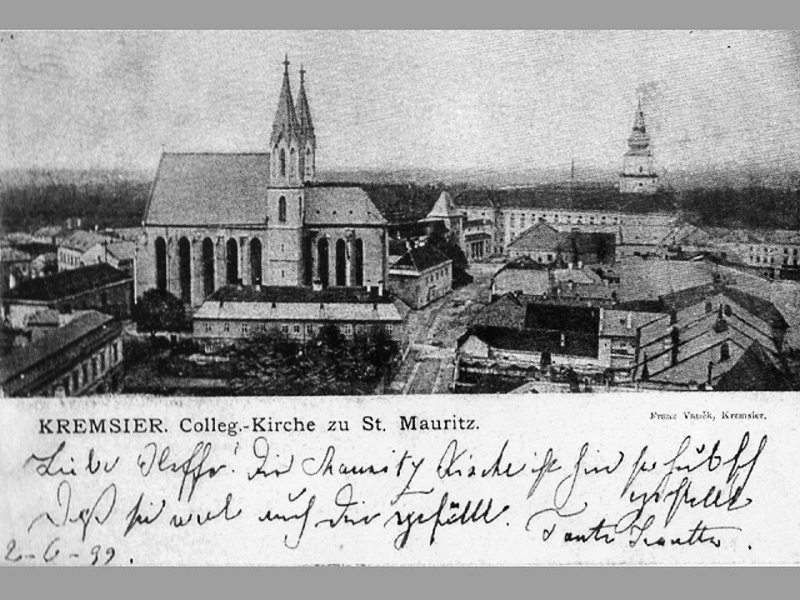 KREMSIER. Colleg.-Kirche zu St. Mauritz.
Franz Vaněk, Kremsier.
Liebe Die Mauritz Kirche ist hier so hübsch
gestellt
daß sie wol auch dir gefällt.
Tante
2-6-99.